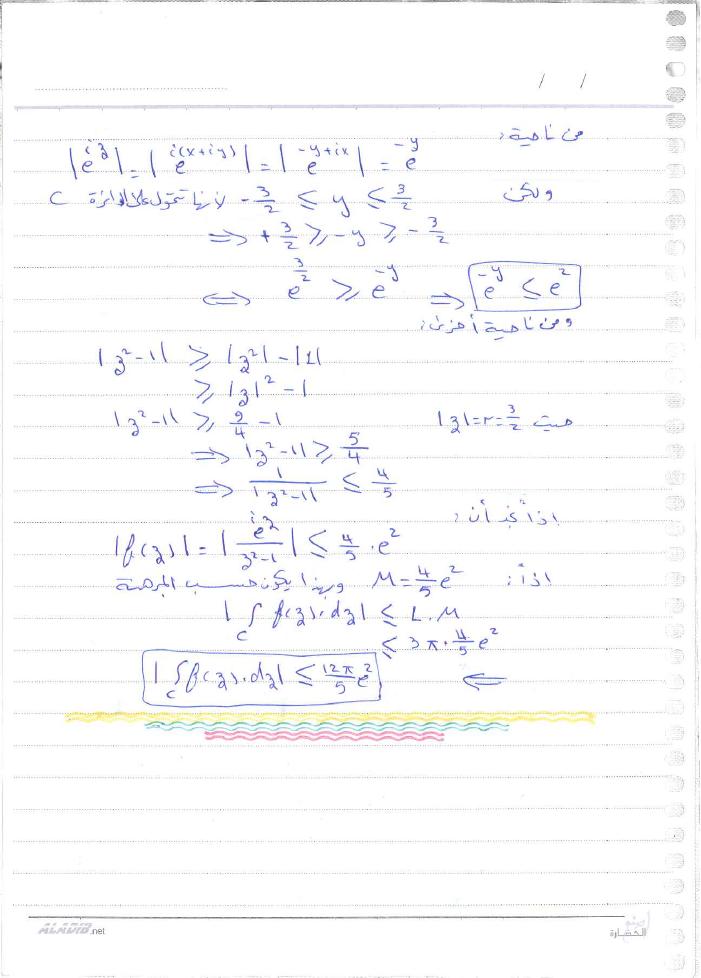 / /
من ناحية:
|e^{iz}| = |e^{i(x+iy)}| = |e^{-y+ix}| = e^{-y}
ولكن -3/2 ≤ y ≤ 3/2 لأنها تتحول على الدائرة C
⇒ +3/2 ≥ -y ≥ -3/2
⇔ e^{3/2} ≥ e^{-y} ⇒ e^{-y} ≤ e^2
ومن ناحية أخرى:
|z²-1| ≥ |z²| - |1|
≥ |z|² - 1
|z²-1| ≥ 9/4 - 1 حيث |z|=r=3/2
⇒ |z²-1| ≥ 5/4
⇒ 1/|z²-1| ≤ 4/5
إذاً نجد أن:
|f(z)| = |e^{iz}/z²-1| ≤ 4/5 · e²
إذاً: M = 4/5 e² وبهذا يكون حسب المبرهنة
|∫_C f(z).dz| ≤ L.M
≤ 3π · 4/5 e²
⇐ |∫_C f(z).dz| ≤ 12π/5 e²
ALADIB.net
الحضارة